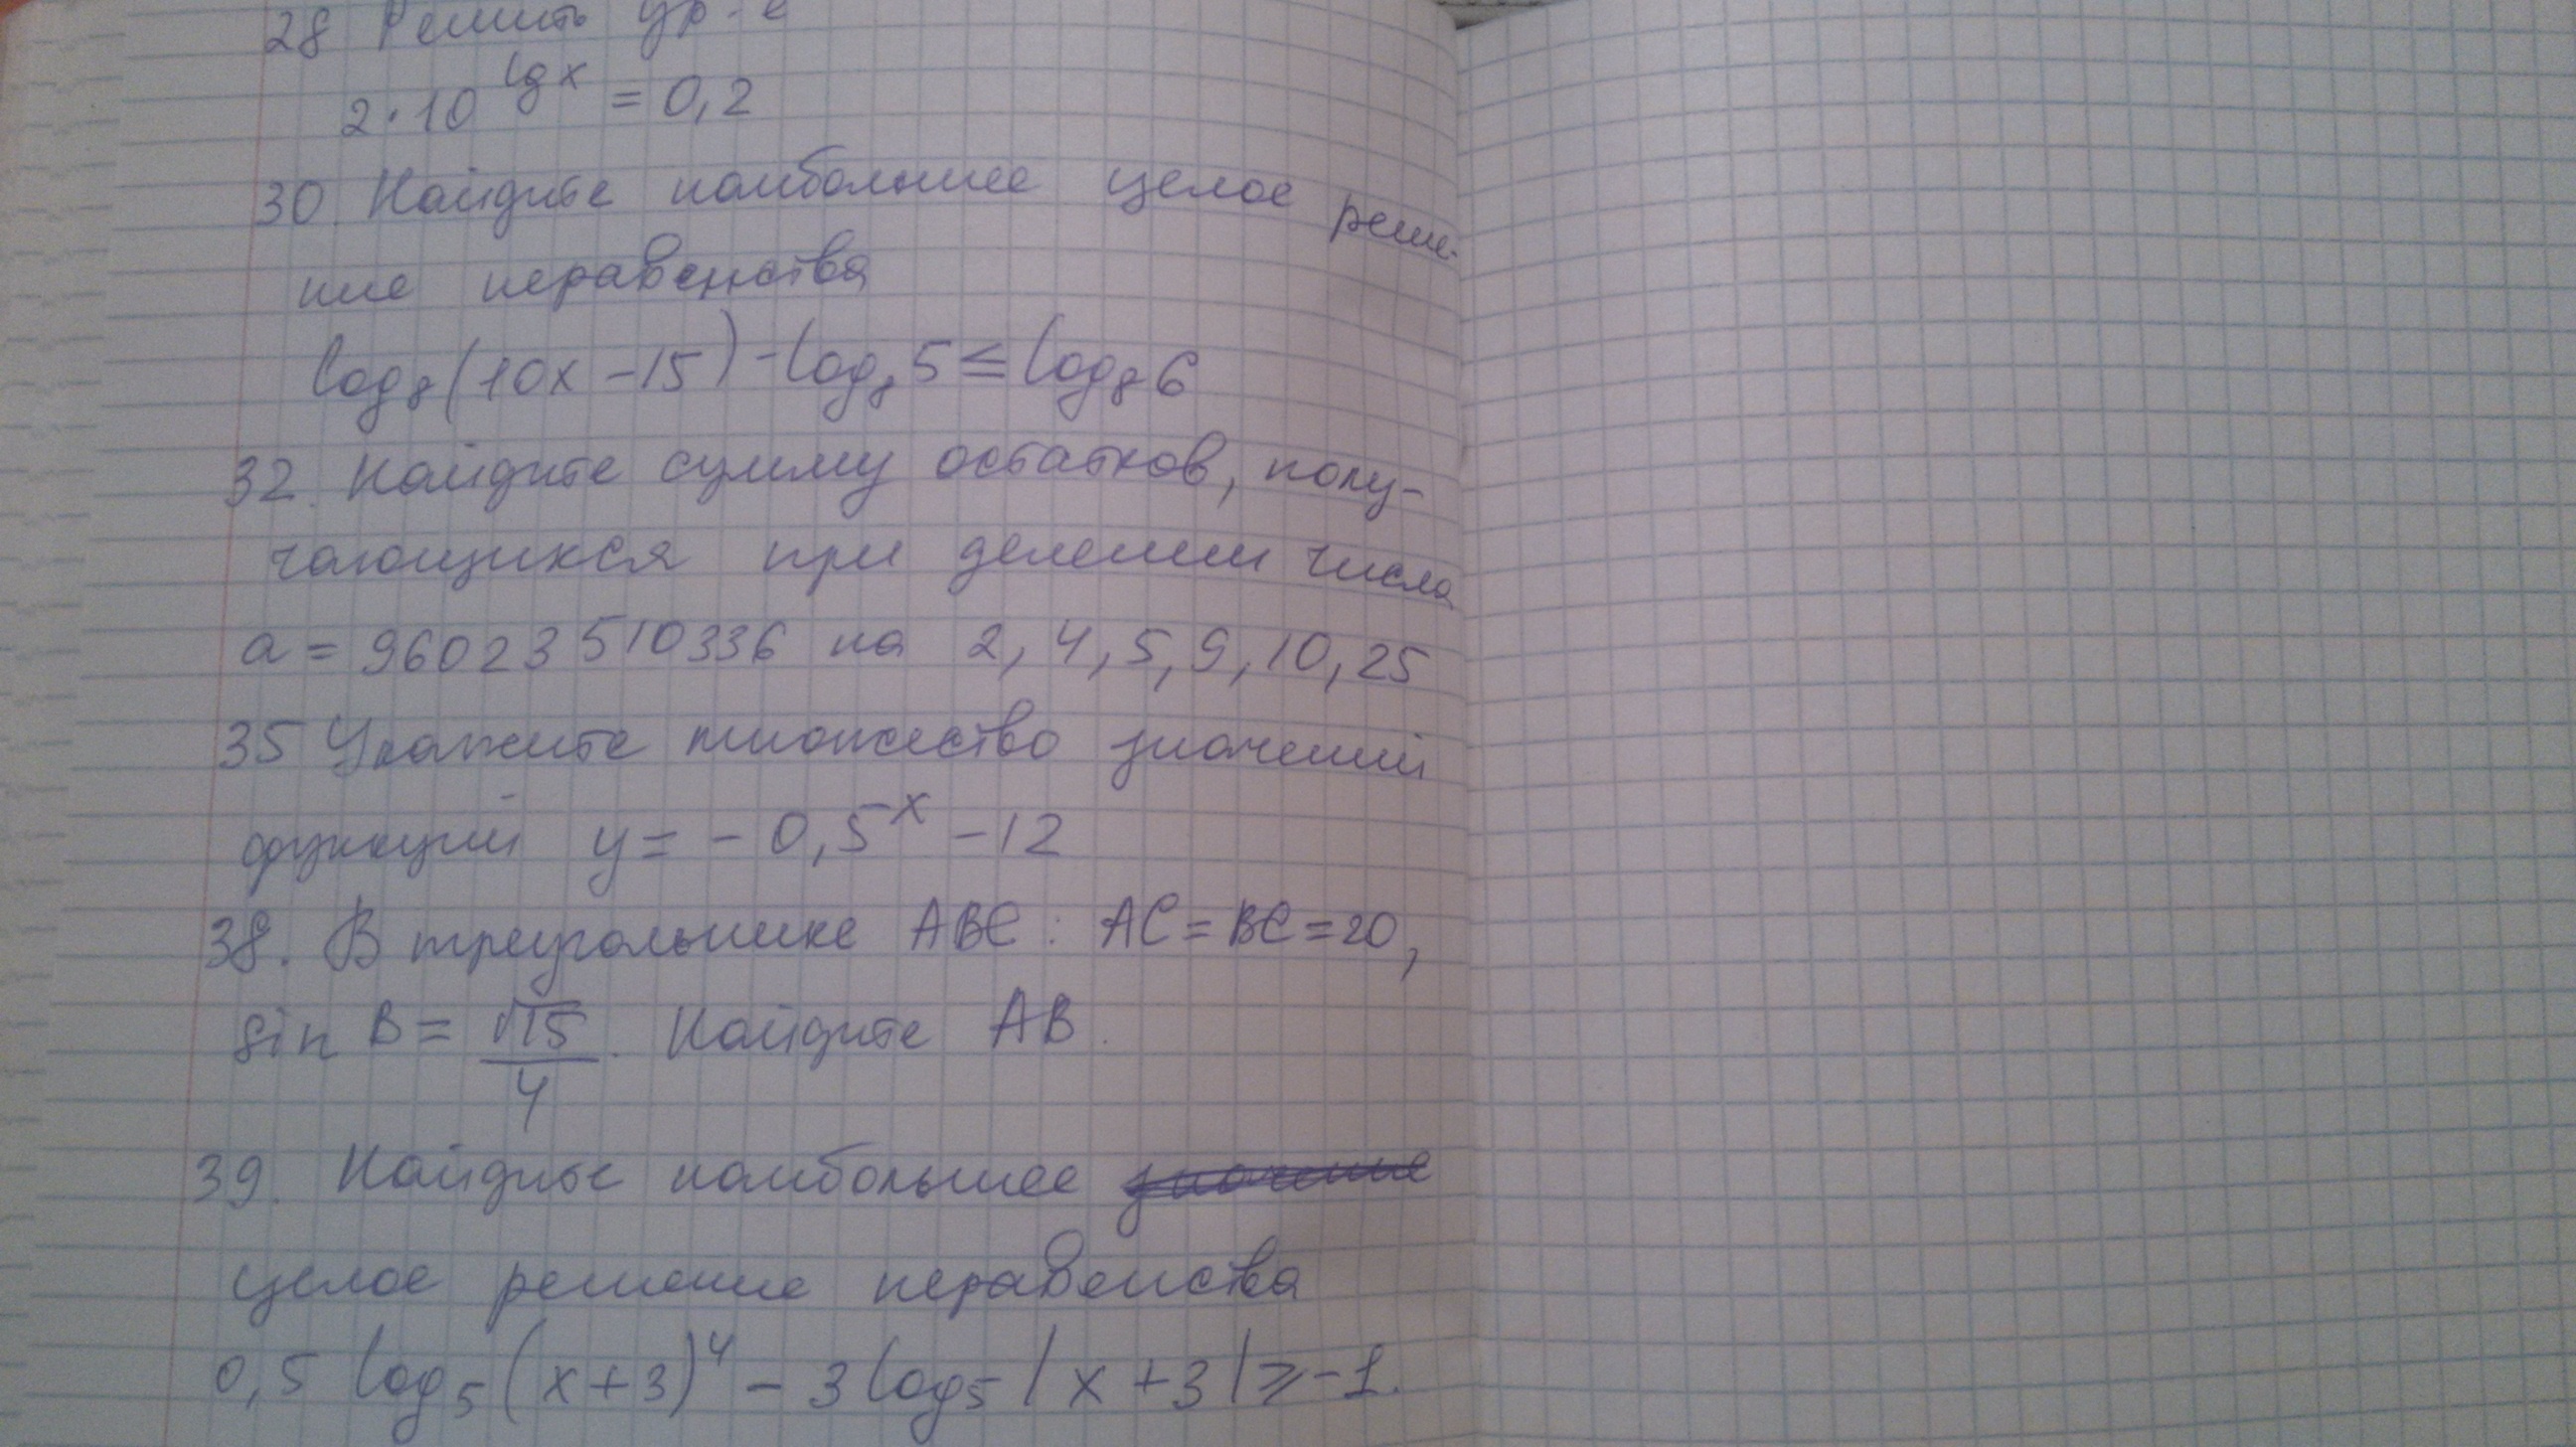 28 Решить ур-е
2·10^lg x = 0,2
30. Найдите наибольшее целое реше-
ние неравенства
log₈(10x - 15) - log₈5 ≤ log₈6
32. Найдите сумму остатков, полу-
чающихся при делении числа
a = 96023510336 на 2, 4, 5, 9, 10, 25
35 Укажите множество значений
функций y = - 0,5^x - 12
38. В треугольнике ABC : AC = BC = 20,
sin B = √15/4. Найдите AB.
39. Найдите наибольшее значение
целое решение неравенства
0,5 log₅(x+3)⁴ - 3 log₅|x+3| ≥ -1.